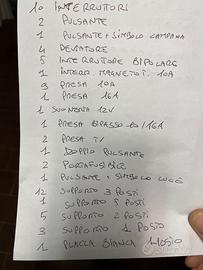 10 INTERRUTTORI
2 PULSANTE
1 PULSANTE + SIMBOLO CAMPANA
4 DEVIATORE
5 INTERRUTTORE BIPOLARE
1 INTERR. MAGNETOT. 10A
9 PRESA 10A
1 PRESA 16A
1 SUONERIA 12V
1 PRESA BIPASSO 10/16A
2 PRESA TV
1 DOPPIO PULSANTE
2 PORTAFUSIBILE
1 PULSANTE + SIMBOLO LUCE
12 SUPPORTO 3 POSTI
1 SUPPORTO 5 POSTI
5 SUPPORTO 2 POSTI
3 SUPPORTO 1 POSTO
1 PLACCA BIANCA 1 POSTO